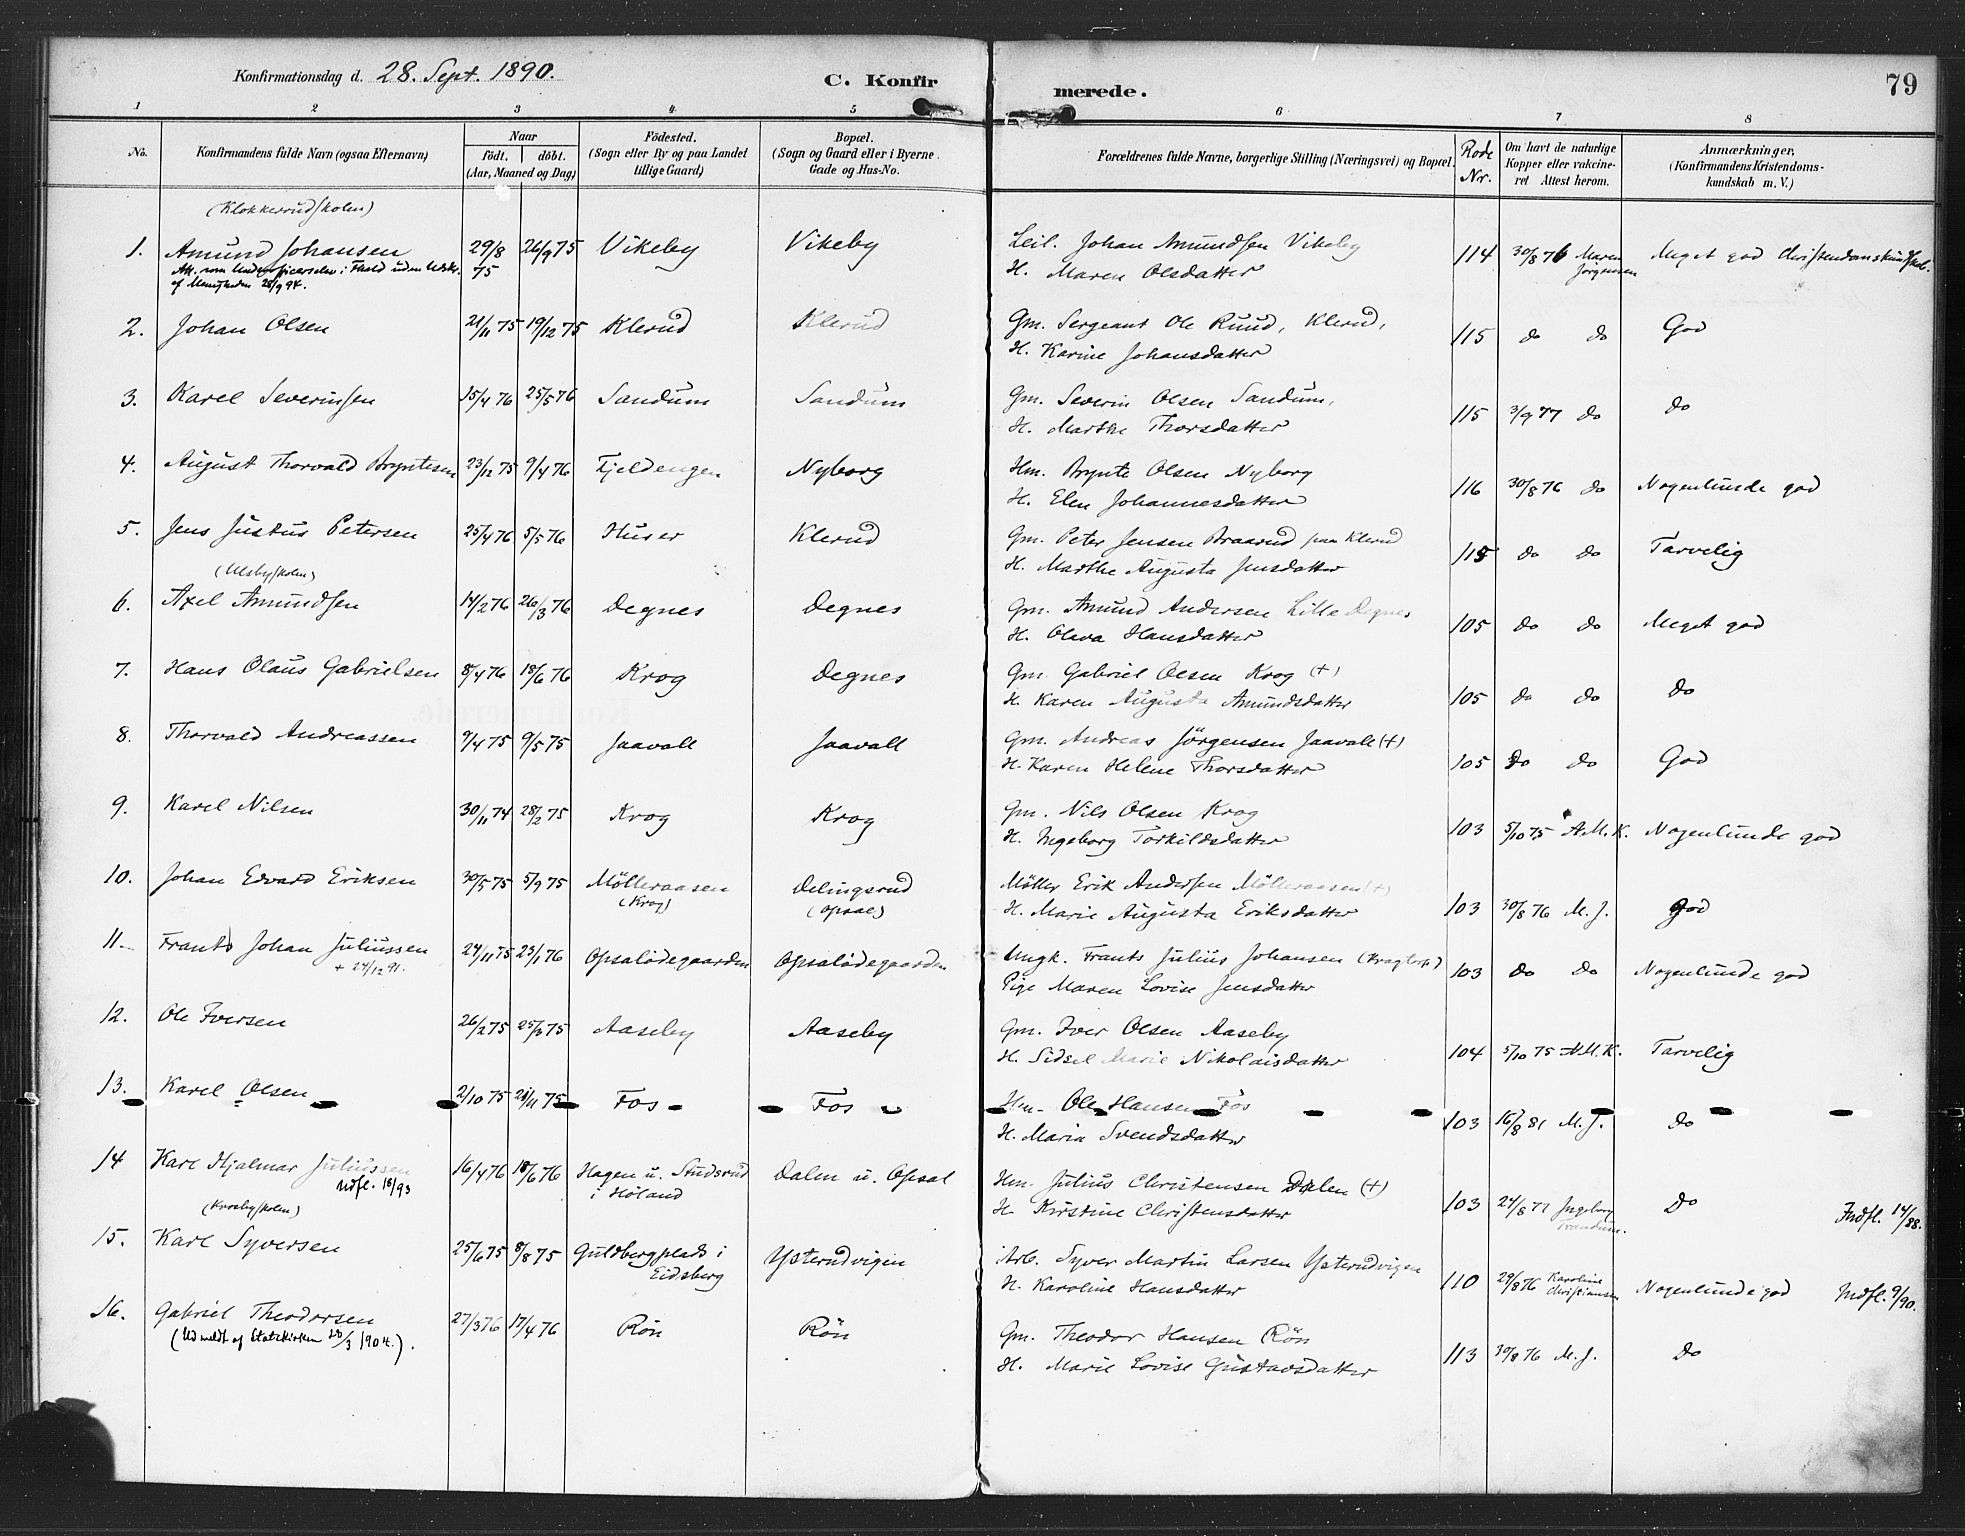 Konfirmationsdag d. 28. Sept. 1890.
C. Konfirmerede.
79
1 2 3 4 5 6 7 8
No.
Konfirmandens fulde Navn (ogsaa Efternavn)
Naar
födt. döbt.
(Aar, Maaned og Dag)
Födested.
(Sogn eller By og paa Landet
tillige Gaard)
Bopæl.
(Sogn og Gaard eller i Byerne
Gade og Hus-No.
Forældrenes fulde Navne, borgerlige Stilling (Næringsvei) og Bopæl.
Rode
Nr.
Om havt de naturlige
Kopper eller vakcine-
ret Attest herom.
Anmærkninger,
(Konfirmandens Kristendoms-
kundskab m. V.)
(Klokkerudskolen)
1. Amund Johansen 29/8 75 26/9 75 Vikeby Vikeby Leil. Johan Amundsen Vikeby 114 30/8 76 Maren Jørgensen Meget god Christendomskundskab.
H. Maren Olsdatter
Att. som
28/9 94.
2. Johan Olsen 21/11 75 19/12 75 Klerud Klerud Gm. Sergeant Ole Ruud, Klerud, 115 do do God
H. Karine Johansdatter
3. Karel Severinsen 15/4 76 25/5 76 Sandum Sandum Gm. Severin Olsen Sandum, 115 3/9 77 do do
H. Marthe Thorsdatter
4. August Thorvald Bryntesen 23/12 75 9/4 76 Fjeldengen Nyborg Hm. Brynte Olsen Nyborg 116 30/8 76 do Nogenlunde god
H. Elen Johannesdatter
5. Jens Justus Petersen 25/4 76 5/5 76 Huser Klerud Gm. Peter Jensen Braarud paa Klerud 115 do do Tarvelig
H. Marthe Augusta Jensdatter
(Ulsbyskolen)
6. Axel Amundsen 14/2 76 26/3 76 Degnes Degnes Gm. Amund Andersen Lille Degnes 105 do do Meget god
H. Oleva Hansdatter
7. Hans Olaus Gabrielsen 8/4 76 18/6 76 Krog Degnes Gm. Gabriel Olsen Krog (+) 105 do do do
H. Karen Augusta Amundsdatter
8. Thorvald Andreassen 9/4 75 9/5 75 Jaavall Jaavall Gm. Andreas Jørgensen Jaavall (+) 105 do do God
H. Karen Helene Thorsdatter
9. Karel Nilsen 30/11 74 28/2 75 Krog Krog Gm. Nils Olsen Krog 103 5/10 75 A.M.K. Nogenlunde god
H. Ingeborg Torkildsdatter
10. Johan Edvard Eriksen 30/5 75 5/9 75 Mølleraasen Delingsrud Møller Erik Andersen Mølleraasen (+) 103 30/8 76 M.J. god
(Krog) (Opsal) H. Marie Augusta Eriksdatter
11. Frants Johan Juliussen 24/11 75 23/1 76 Opsalødegaarden Opsalødegaarden Ungk. Frants Julius Johansen (Kragtorp) 103 do do Nogenlunde god
+ 24/12 91. Pige Maren Lovise Jensdatter
12. Ole Iversen 26/2 75 25/3 75 Aaseby Aaseby Gm. Iver Olsen Aaseby 104 5/10 75 A.M.K. Tarvelig
H. Sidsel Marie Nikolaisdatter
13. Karel Olsen 2/10 75 21/11 75 Fos Fos Hm. Ole Hansen Fos 103 16/8 81 M.J. do
H. Maria Svendsdatter
14 Karl Hjalmar Juliussen 16/4 76 18/6 76 Hagen u. Studsrud i Høland Dalen u. Opsal Hm. Julius Christensen Dalen (+) 103 24/8 77 Ingeborg Trandum. Do Indfl. 14/88.
Udfl. 16/93 H. Kirstine Christensdatter
(Krosbyskolen)
15. Karl Syversen 25/6 75 8/8 75 Guldbergplads i Eidsberg Ysterudvigen Arb. Syver Martin Larsen Ysterudvigen 110 29/8 76 Karoline Christiansen Nogenlunde god Indfl. 9/90.
H. Karoline Hansdatter
16. Gabriel Theodorsen 27/3 76 17/4 76 Røn Røn Gm. Theodor Hansen Røn 113 30/8 76 M.J. Do
(Udmeldt af Statskirken 28/3 1904.). H. Marie Lovise Gustavsdatter